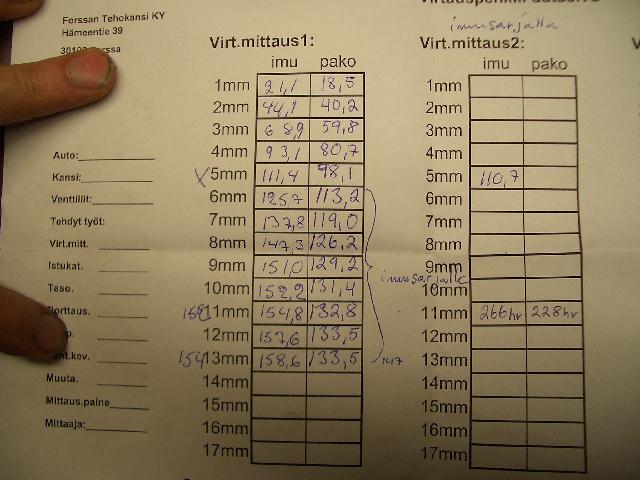 Forssan Tehokansi KY
Hämeentie 39
Forssa
Auto:
Kansi:
Venttiilit:
Tehdyt työt:
Virt.mitt.
Istukat.
Taso.
Porttaus.
kev.
Muuta.
Mittaus.paine
Mittaaja:
Virt.mittaus1:
imu pako
1mm 21,1 18,5
2mm 44,1 40,2
3mm 68,9 59,8
4mm 93,1 80,7
X 5mm 111,4 98,1
6mm 125,7 113,2
7mm 137,8 119,0
8mm 147,3 126,2
9mm 151,0 129,2
10mm 152,2 131,4
11mm 154,8 132,8
12mm 157,6 133,5
154 13mm 158,6 133,5
14mm
15mm
16mm
17mm
imusarjalla
147
imusarjalla
Virt.mittaus2:
imu pako
1mm
2mm
3mm
4mm
5mm 110,7
6mm
7mm
8mm
9mm
10mm
11mm 266hv 228hv
12mm
13mm
14mm
15mm
16mm
17mm